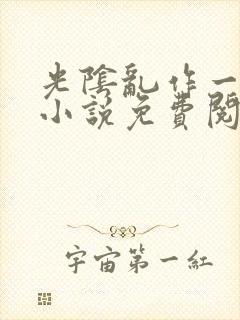 光陰亂作一
小說免費閱
宇宙第一紅